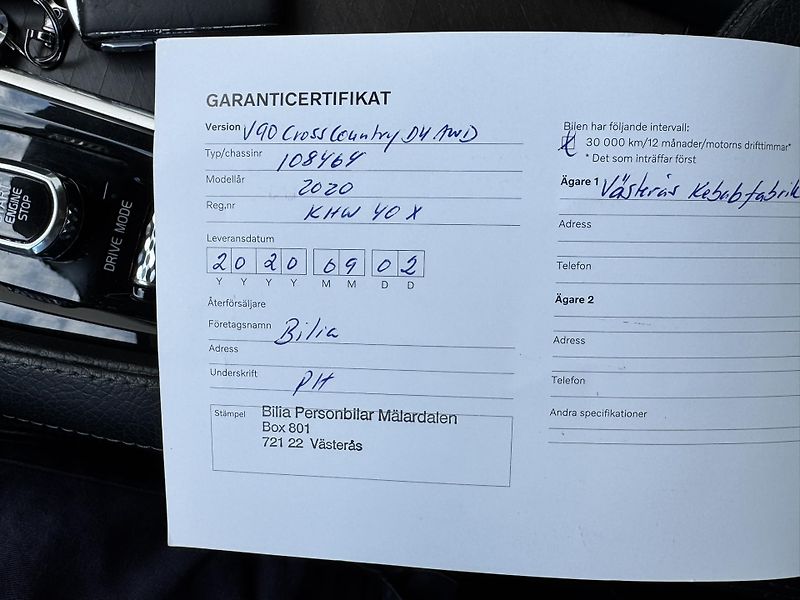 START
ENGINE
STOP
DRIVE MODE
GARANTICERTIFIKAT
Version V90 Cross Country D4 AWD
Typ/chassinr 108464
Modellår 2020
Reg,nr KHW 40X
Leveransdatum
2 0 2 0 0 9 0 2
Y Y Y Y M M D D
Återförsäljare
Företagsnamn Bilia
Adress
Underskrift PH
Stämpel Bilia Personbilar Mälardalen
Box 801
721 22 Västerås
Bilen har följande intervall:
30 000 km/12 månader/motorns drifttimmar*
* Det som inträffar först
Ägare 1 Västerås Kebabfabrik
Adress
Telefon
Ägare 2
Adress
Telefon
Andra specifikationer